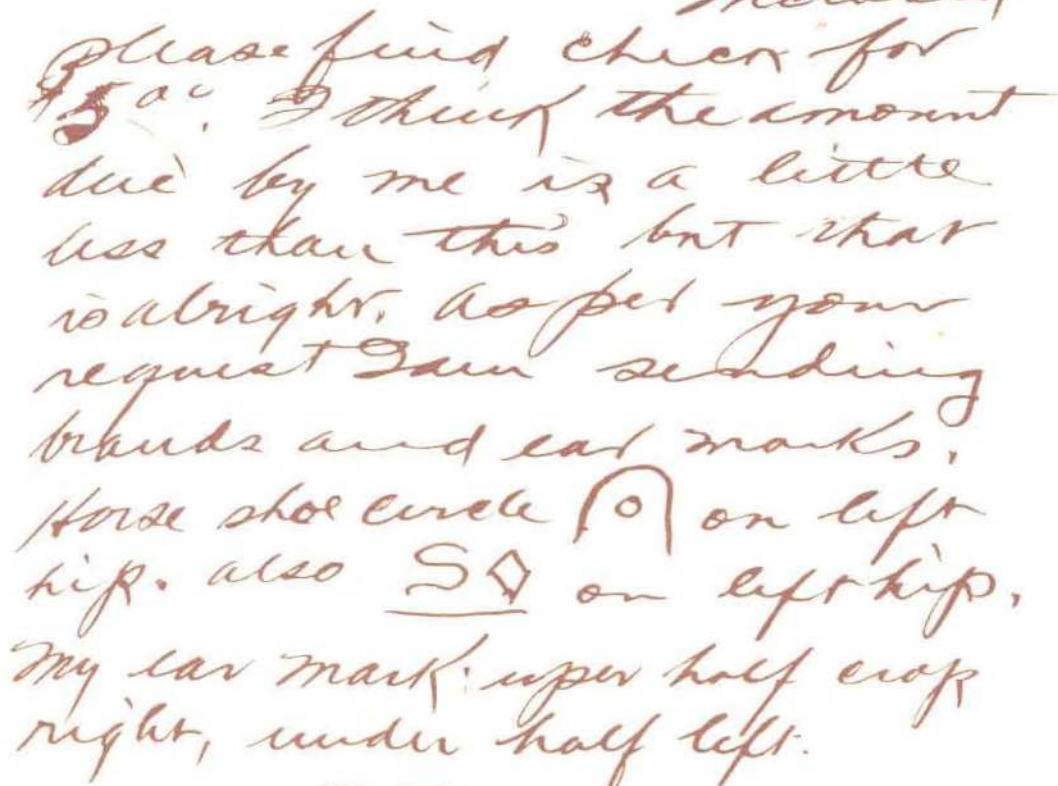 please find check for
$5.00. I think the amount
due by me is a little
less than this but that
is alright. As per your
request I am sending
brands and ear marks.
Horse shoe circle on left
hip. also S◇ on left hip.
My ear mark: uper half crop
right, under half left.